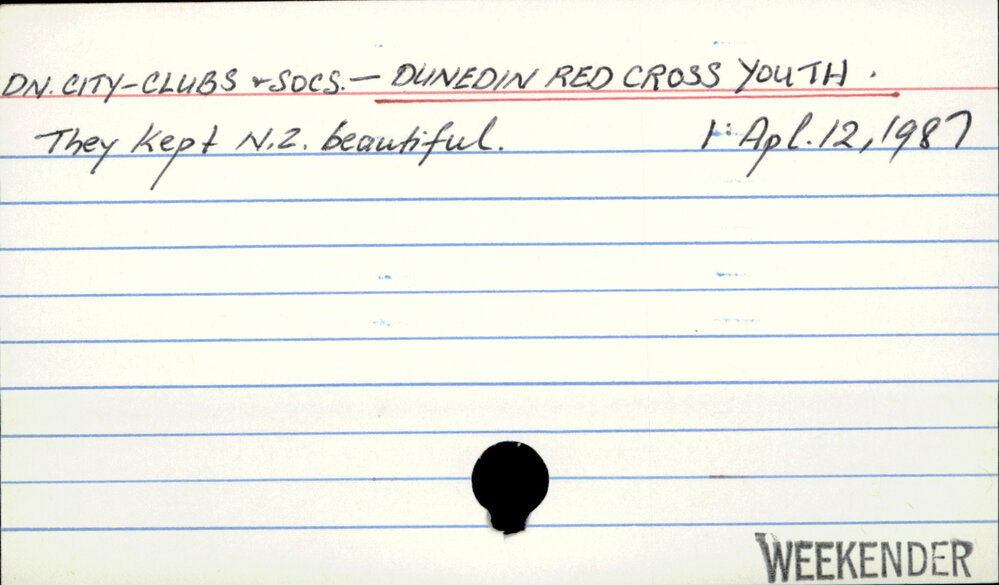 DN. CITY-CLUBS & SOCS. — DUNEDIN RED CROSS YOUTH.
They kept N.Z. beautiful. 1: Apl. 12, 1987
WEEKENDER